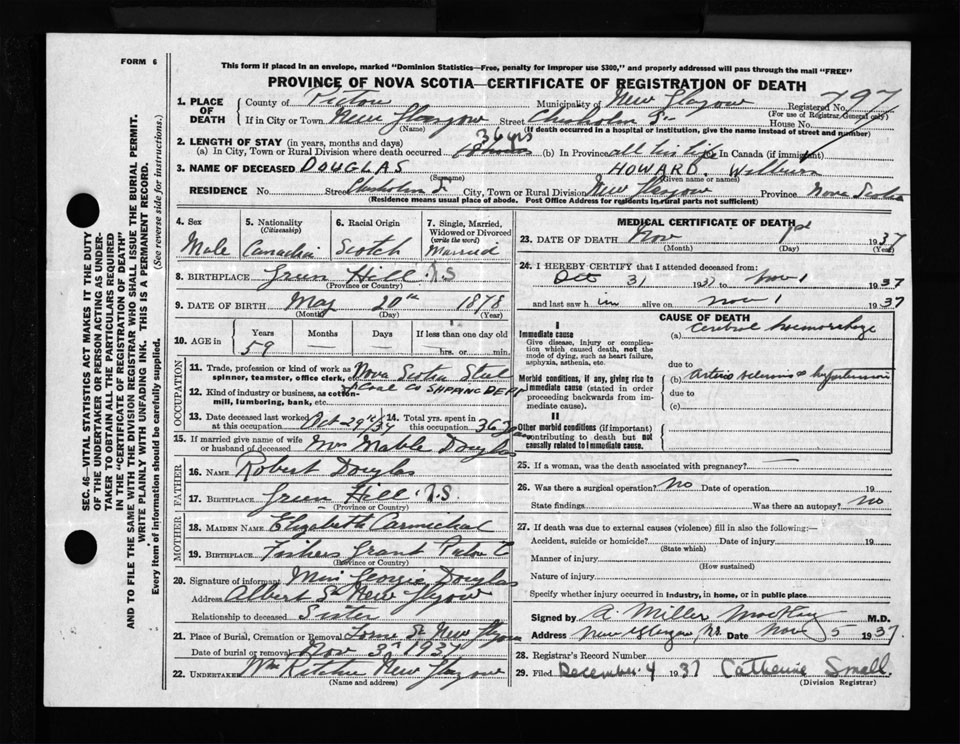 FORM 6
This form if placed in an envelope, marked "Dominion Statistics—Free, penalty for improper use $300," and properly addressed will pass through the mail "FREE"
PROVINCE OF NOVA SCOTIA—CERTIFICATE OF REGISTRATION OF DEATH
1. PLACE OF DEATH County of Pictou Municipality of New Glasgow Registered No. 797
(For use of Registrar General only)
If in City or Town New Glasgow Street Chisholm St House No.
(Name) (If death occurred in a hospital or institution, give the name instead of street and number)
2. LENGTH OF STAY (in years, months and days) 36 yrs
(a) In City, Town or Rural Division where death occurred (b) In Province all his life (c) In Canada (if immigrant)
3. NAME OF DECEASED DOUGLAS HOWARD. Wilburn
(Surname) (Given name or names)
RESIDENCE No. Street Chisholm St City, Town or Rural Division New Glasgow Province Nova Scotia
(Residence means usual place of abode. Post Office Address for residents in rural parts not sufficient)
4. Sex 5. Nationality (Citizenship) 6. Racial Origin 7. Single, Married, Widowed or Divorced (write the word)
Male Canadian Scotch Married
8. BIRTHPLACE Green Hill N.S
(Province or Country)
9. DATE OF BIRTH May 20th 1878
(Month) (Day) (Year)
10. AGE in Years Months Days If less than one day old
59 — — — hrs. or min.
OCCUPATION
11. Trade, profession or kind of work as spinner, teamster, office clerk, Nova Scotia Steel
12. Kind of industry or business, as cotton-mill, lumbering, bank, etc. & Coal Co SHIPPING DEPT
13. Date deceased last worked at this occupation Oct 29th/37 14. Total yrs. spent in this occupation 36 yrs
15. If married give name of wife or husband of deceased Mrs Mable Douglas
FATHER
16. NAME Robert Douglas
17. BIRTHPLACE Green Hill N.S
(Province or Country)
MOTHER
18. MAIDEN NAME Elizabeth Carmichal
19. BIRTHPLACE Fishers Grant Pictou C
(Province or Country)
20. Signature of informant Miss Georgie Douglas
Address Albert St New Glasgow
Relationship to deceased Sister
21. Place of Burial, Cremation or Removal Lorne St New Glasgow
Date of burial or removal Nov 3rd 1937
22. UNDERTAKER Wm Ritchie New Glasgow
(Name and address)
MEDICAL CERTIFICATE OF DEATH
23. DATE OF DEATH Nov 1st 1937
(Month) (Day) (Year)
24. I HEREBY CERTIFY that I attended deceased from:
Oct 31 1937 to Nov 1 1937
and last saw him alive on Nov 1 1937
CAUSE OF DEATH
I
Immediate cause
Give disease, injury or complication which caused death, not the mode of dying, such as heart failure, asphyxia, asthenia, etc.
(a) Cerebral haemorrhage
due to
Morbid conditions, if any, giving rise to immediate cause (stated in order proceeding backwards from immediate cause).
(b) Arterio sclerosis & hypertension
due to
(c)
II
Other morbid conditions (if important) contributing to death but not causally related to immediate cause.
25. If a woman, was the death associated with pregnancy? —
26. Was there a surgical operation? No Date of operation 19
State findings Was there an autopsy? no
27. If death was due to external causes (violence) fill in also the following:—
Accident, suicide or homicide? Date of injury 19
(State which)
Manner of injury
(How sustained)
Nature of injury
Specify whether injury occurred in Industry, in home, or in public place
Signed by A. Miller MacKay M.D.
Address New Glasgow, N.S. Date Nov 5 1937.
28. Registrar's Record Number
29. Filed December 4 1937 Catherine Small.
(Division Registrar)
SEC. 46—VITAL STATISTICS ACT MAKES IT THE DUTY
OF THE UNDERTAKER OR PERSON ACTING AS UNDER-
TAKER TO OBTAIN ALL THE PARTICULARS REQUIRED
IN THE "CERTIFICATE OF REGISTRATION OF DEATH"
AND TO FILE THE SAME WITH THE DIVISION REGISTRAR WHO SHALL ISSUE THE BURIAL PERMIT.
WRITE PLAINLY WITH UNFADING INK. THIS IS A PERMANENT RECORD.
Every item of information should be carefully supplied. (See reverse side for instructions.)